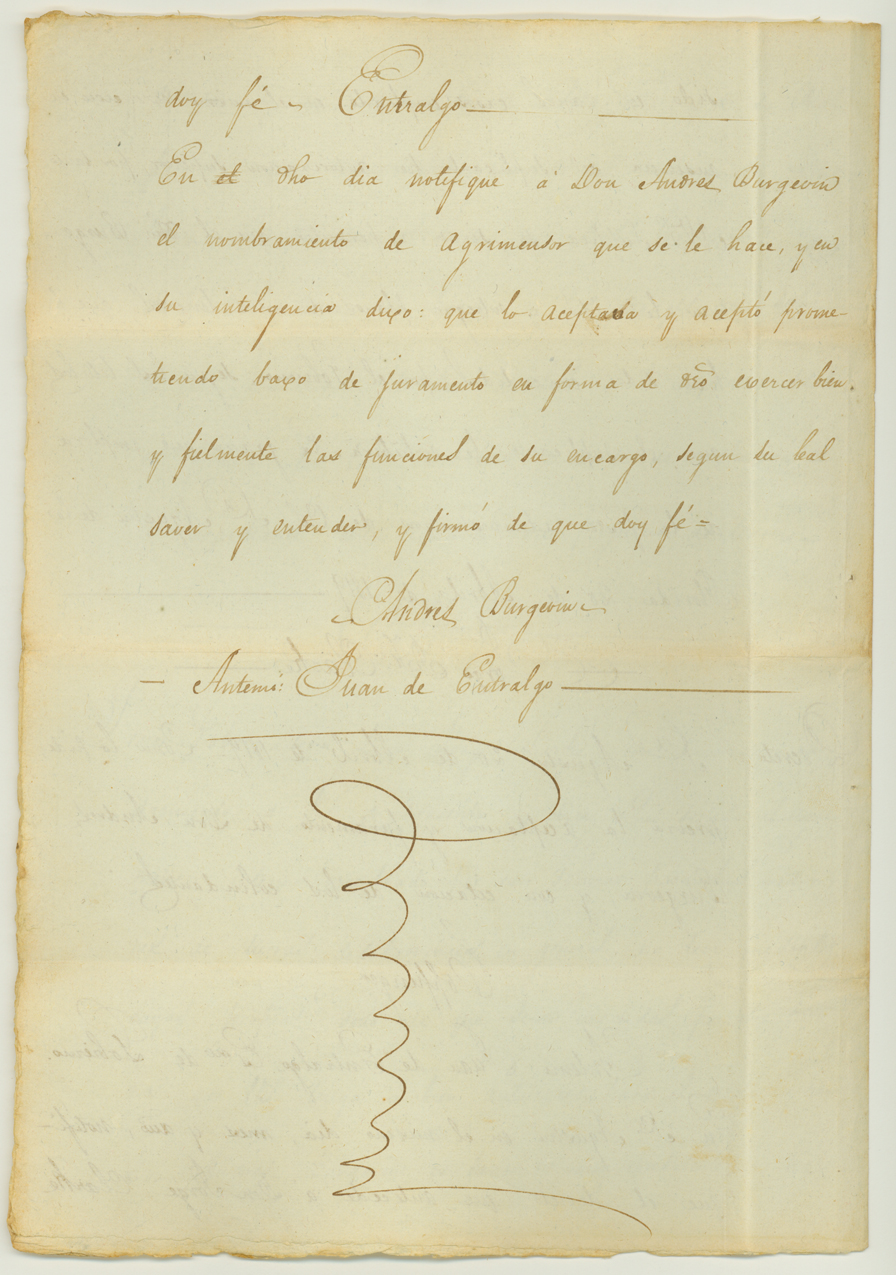 doy fé ~ Entralgo
En el dho dia notifiqué á Don Andres Burgevin
el nombramiento de Agrimensor que se le hace, y en
su inteligencia dixo: que lo aceptava y aceptó prome-
tiendo baxo de juramento en forma de dró exercer bien
y fielmente las funciones de su encargo, segun su leal
saver y entender, y firmó de que doy fé =
Andres Burgevin
— Antemi: Juan de Entralgo